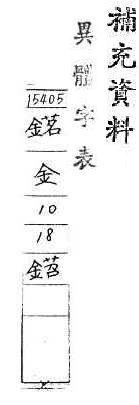 補充資料
異體字表
15405
金
10
18